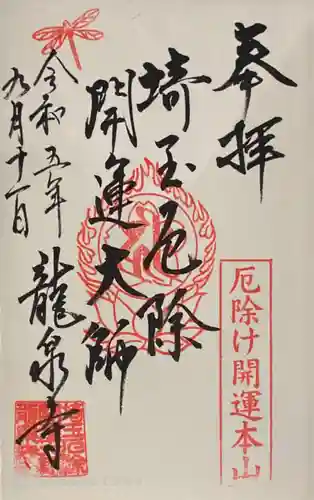 奉拝
厄除け開運本山
埼玉厄除
開運大師
令和五年
九月十一日
龍泉寺